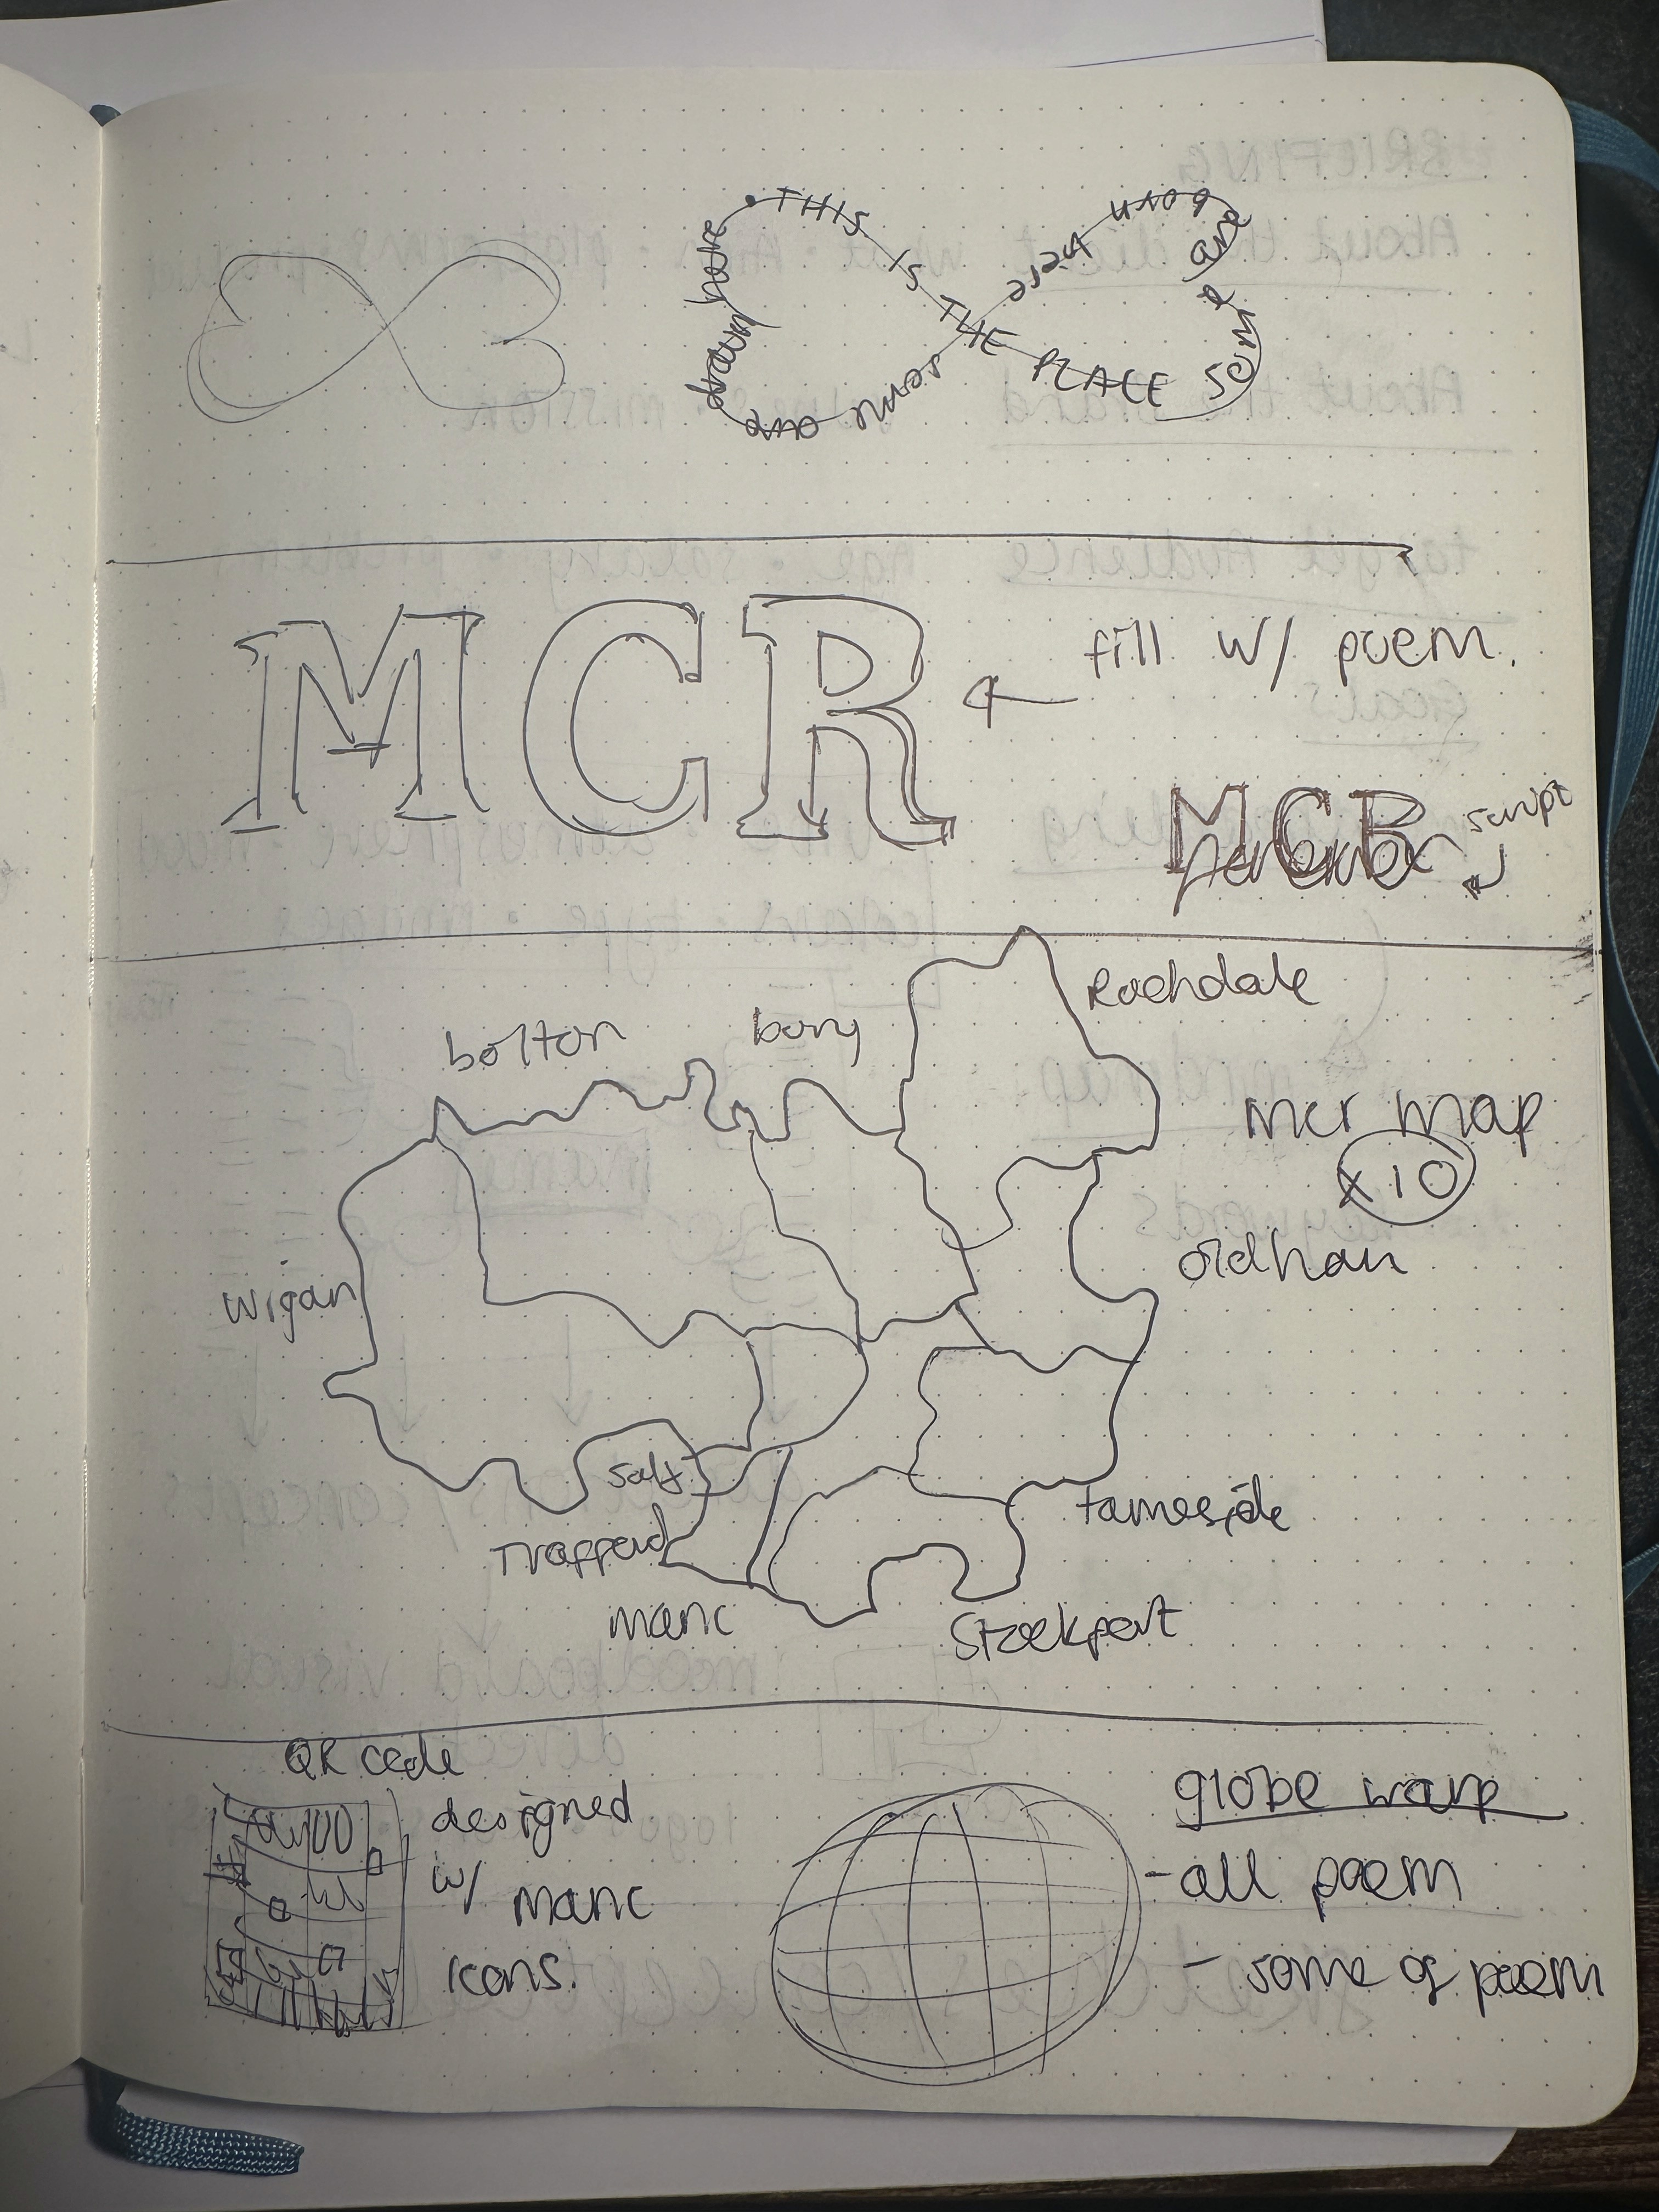 THIS IS THE PLACE some are born here and some drawn here
MCR
fill w/ poem.
MCR
forever
script
Rochdale
bolton
bury
mcr map
x10
wigan
oldham
Salf
Trafford
tameside
manc
Stockport
QR code
designed
w/ manc
icons.
globe warp
- all poem
- some of poem